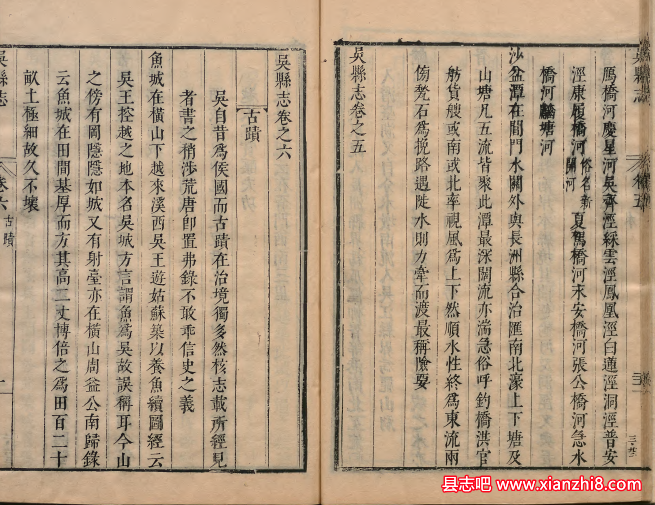 馬橋河慶星河吳齊涇綵雲涇鳳凰涇白蓮涇洞涇普安
涇康履橋河俗名新開河夏駕橋河來安橋河張公橋河急水
橋河麟塘河
沙盆潭在閶門水關外與長洲縣合治匯南北濠上下塘及
山塘凡五流皆聚此潭最深闊流亦湍急俗呼釣橋洪官
舫貨艘或南或北率視風為上下然順水性終為東流兩
傍甃石為挽路遇逆水則力牽而渡最稱險要
吳縣志卷之五
吳縣志卷之六
古蹟
吳自昔為侯國而古蹟在治境獨多然核志載所經見
者書之稍涉荒唐卽置弗錄不敢乖信史之義
魚城在橫山下越來溪西吳王遊姑蘇築以養魚續圖經云
吳王控越之地本名吳城方言謂魚為吳故誤稱耳今山
之傍有岡隱隱如城又有射臺亦在橫山周益公南歸錄
云魚城在田間基厚而方其高二丈博倍之為田百二十
畝土極細故久不壞
吳縣志
卷六
古蹟
一
县志吧 www.xianzhi8.com